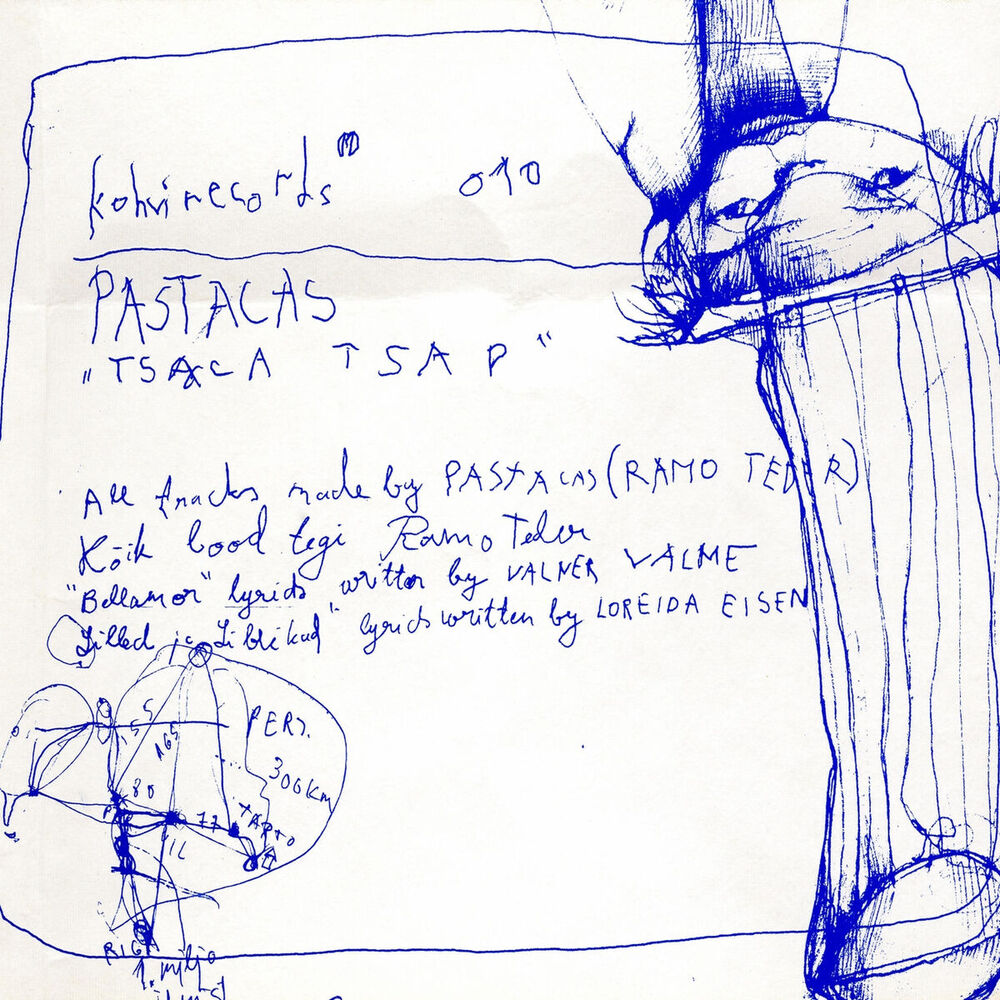 kohvirecords 010
PASTACAS
"TSACA TSAP"
All tracks made by PASTACAS (RAMO TEDER)
Kõik lood tegi Ramo Teder
"Bellamor" lyrics written by VALNER VALME
Lilled ja Liblikad" lyrics written by LOREIDA EISEN
55
165
PERS.
300KM
80
77
TARTO
RIGA